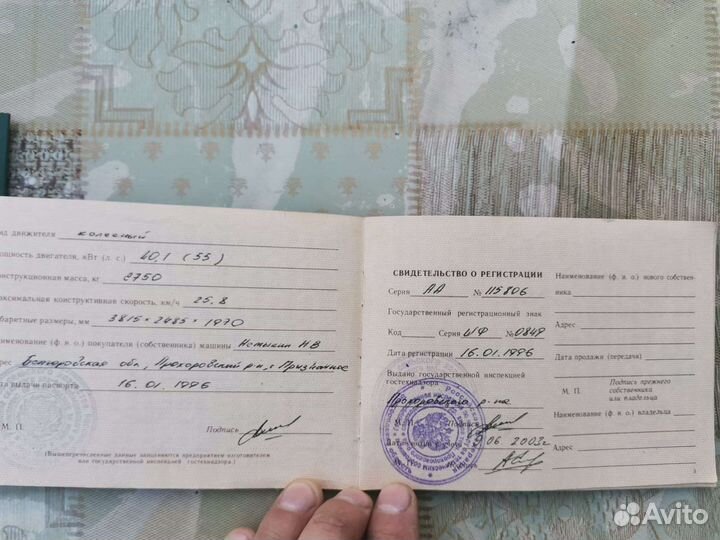 ид движителя колесный
ощность двигателя, кВт (л. с.) 40,1 (55)
онструкционная масса, кг 2750
аксимальная конструктивная скорость, км/ч 25,8
абаритные размеры, мм 3815×2485×1970
именование (ф. и. о.) покупателя (собственника) машины Н.В
рес Белгородская обл, Прохоровский р-н, с Призначное
ата выдачи паспорта 16.01.1996
М. П.
Подпись
(Вышеперечисленные данные заполняются предприятием-изготовителем
или государственной инспекцией гостехнадзора.)
СВИДЕТЕЛЬСТВО О РЕГИСТРАЦИИ
Серия АА № 115806
Государственный регистрационный знак
Код Серия № 0849
Дата регистрации 16.01.1996
Выдано государственной инспекцией
гостехнадзора
Прохоровского р-на
М. П. Подпись
06 2003г
Наименование (ф. и. о.) нового собствен-
ника
Адрес
Дата продажи (передачи)
М. П.
Подпись прежнего
собственника
или владельца
Наименование (ф. и. о.) владельца
Адрес
Avito